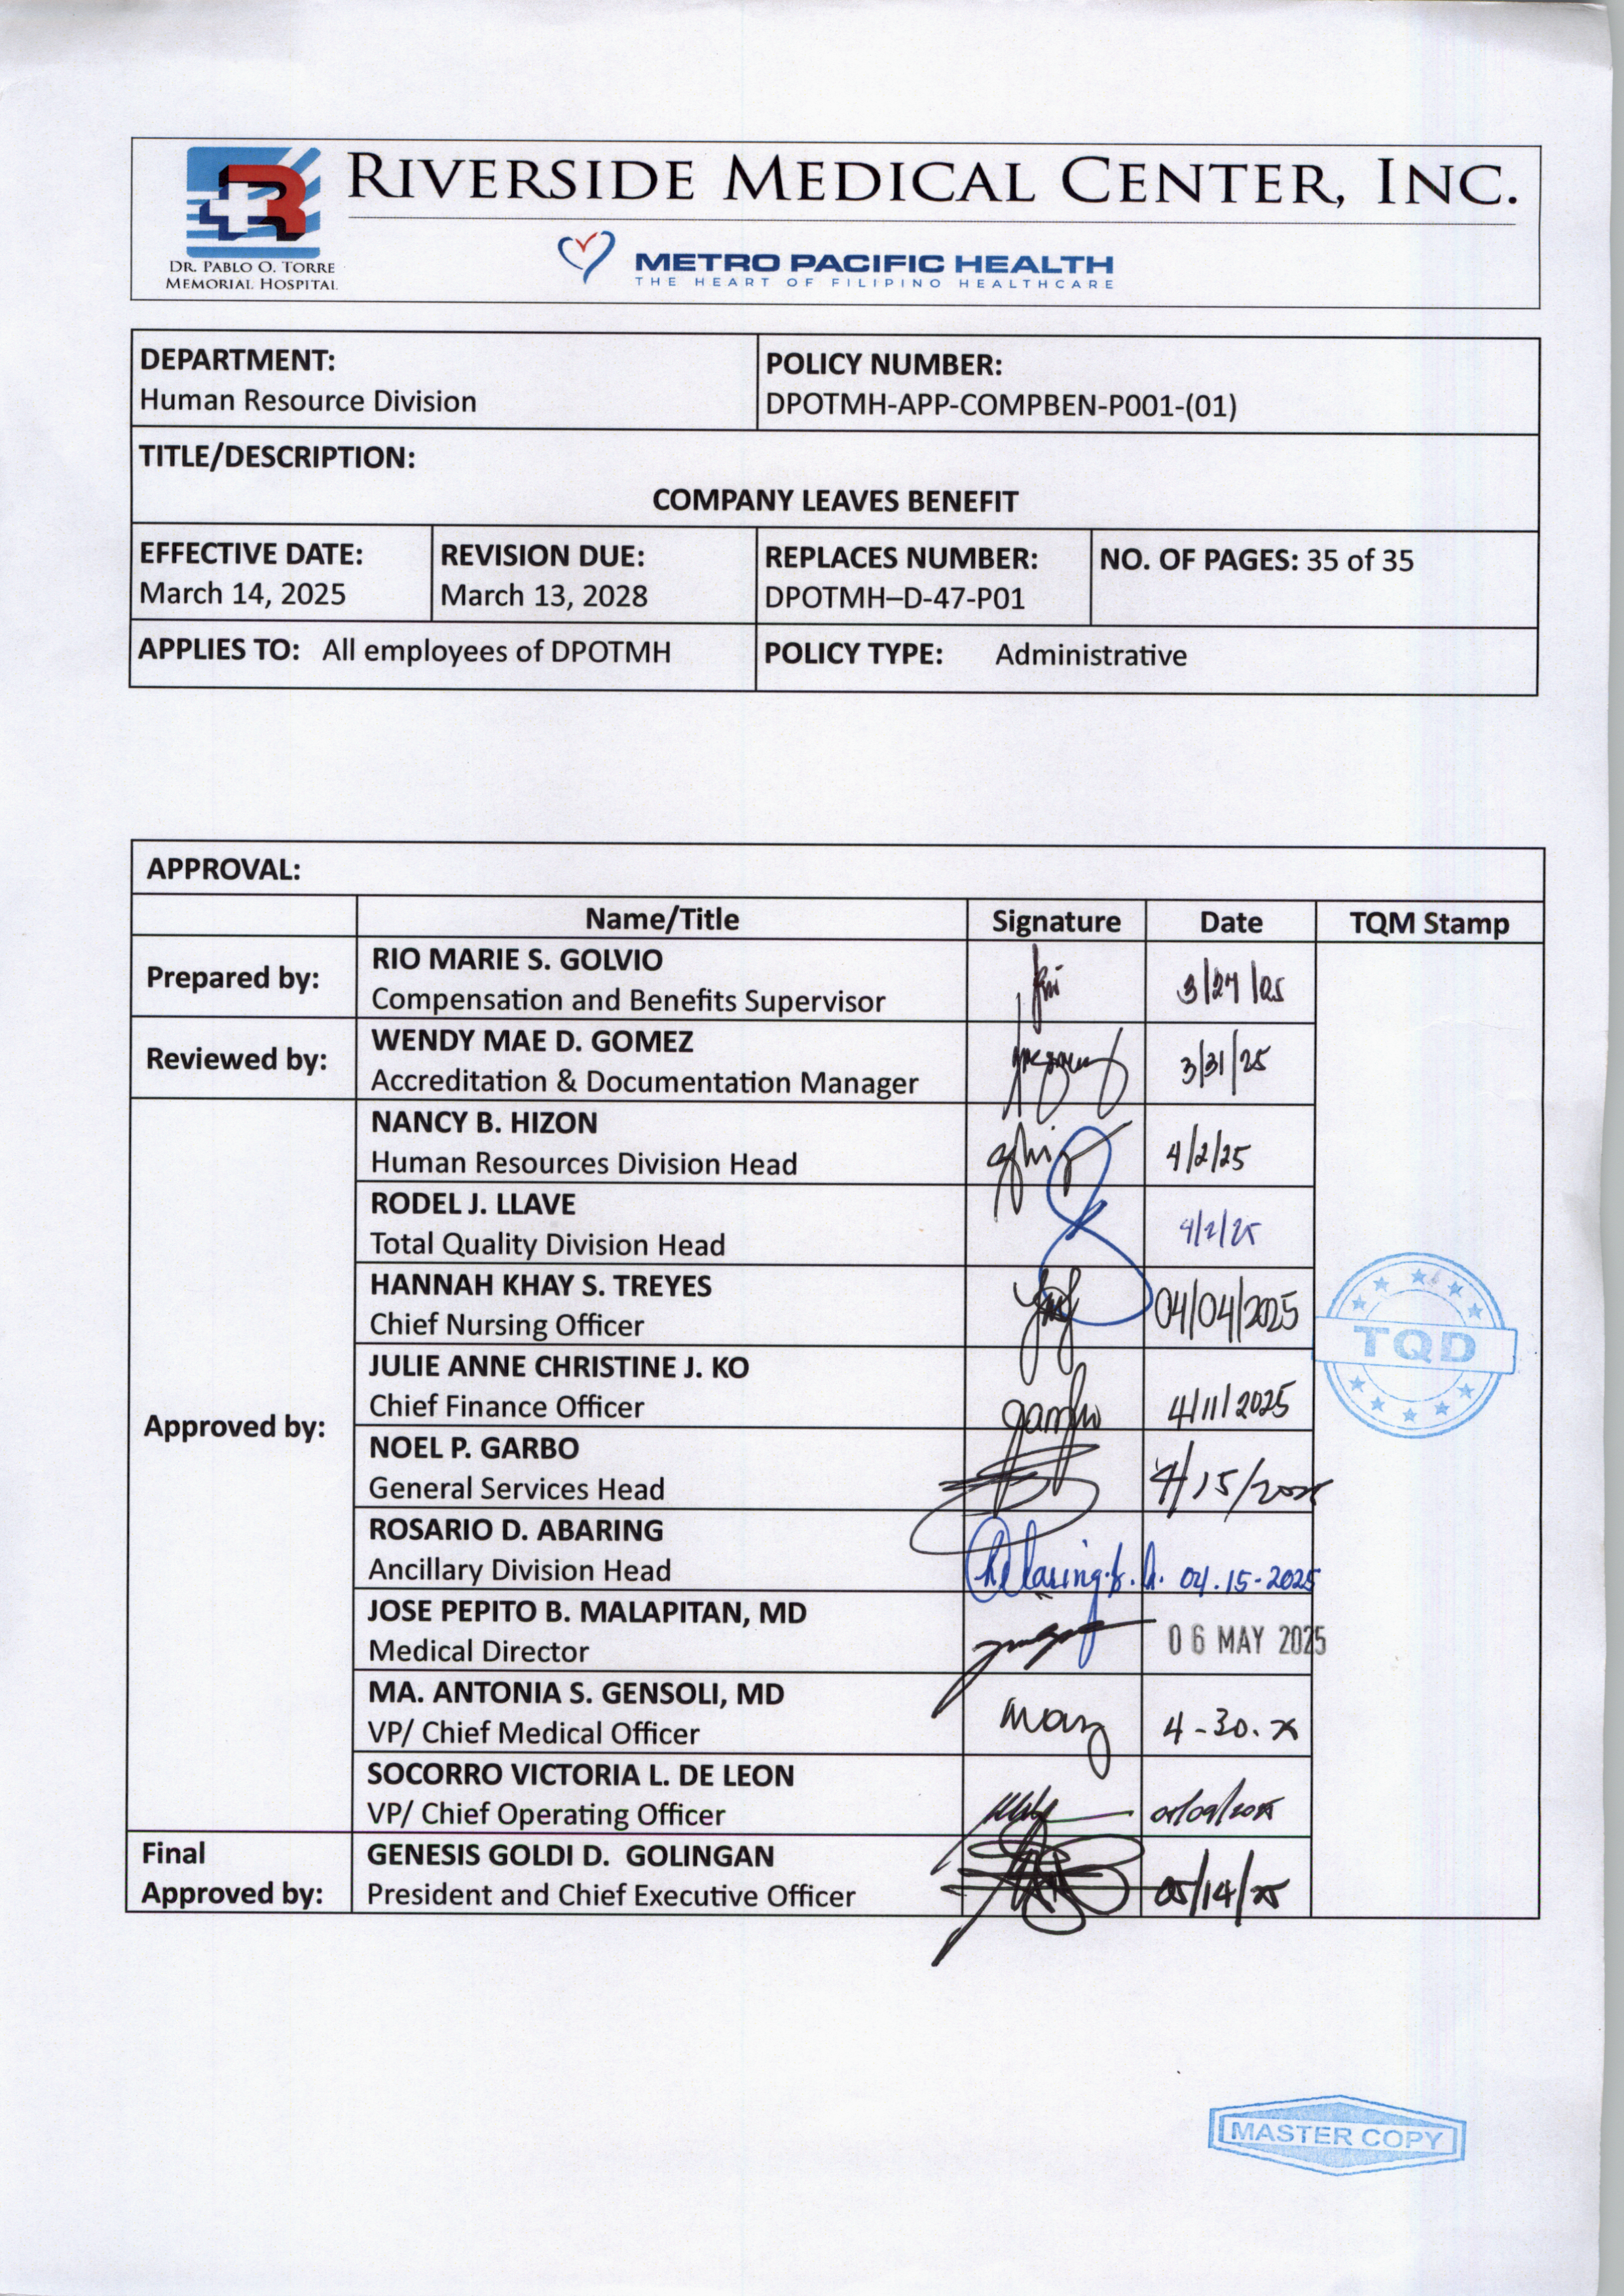 RIVERSIDE MEDICAL CENTER, INC.
DR. PABLO O. TORRE
MEMORIAL HOSPITAL
METRO PACIFIC HEALTH
THE HEART OF FILIPINO HEALTHCARE
DEPARTMENT:
Human Resource Division
POLICY NUMBER:
DPOTMH-APP-COMPBEN-P001-(01)
TITLE/DESCRIPTION:
COMPANY LEAVES BENEFIT
EFFECTIVE DATE:
March 14, 2025
REVISION DUE:
March 13, 2028
REPLACES NUMBER:
DPOTMH–D-47-P01
NO. OF PAGES: 35 of 35
APPLIES TO: All employees of DPOTMH
POLICY TYPE: Administrative
APPROVAL:
Name/Title Signature Date TQM Stamp
Prepared by:
RIO MARIE S. GOLVIO
Compensation and Benefits Supervisor
3/27/25
Reviewed by:
WENDY MAE D. GOMEZ
Accreditation & Documentation Manager
3/31/25
Approved by:
NANCY B. HIZON
Human Resources Division Head
4/2/25
RODEL J. LLAVE
Total Quality Division Head
4/2/25
HANNAH KHAY S. TREYES
Chief Nursing Officer
04/04/2025
JULIE ANNE CHRISTINE J. KO
Chief Finance Officer
4/11/2025
NOEL P. GARBO
General Services Head
4/15/2025
ROSARIO D. ABARING
Ancillary Division Head
04.15-2025
JOSE PEPITO B. MALAPITAN, MD
Medical Director
06 MAY 2025
MA. ANTONIA S. GENSOLI, MD
VP/ Chief Medical Officer
4-30.
SOCORRO VICTORIA L. DE LEON
VP/ Chief Operating Officer
Final
Approved by:
GENESIS GOLDI D. GOLINGAN
President and Chief Executive Officer
05/14/25
TQD
MASTER COPY